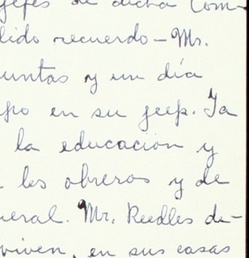 jefes de dicha Com-
lido recuerdo — Mr.
untas y un día
po en su jeep. Ya
la educación y
a les obreros y de
neral. Mr. Reedles de-
viven, en sus casas